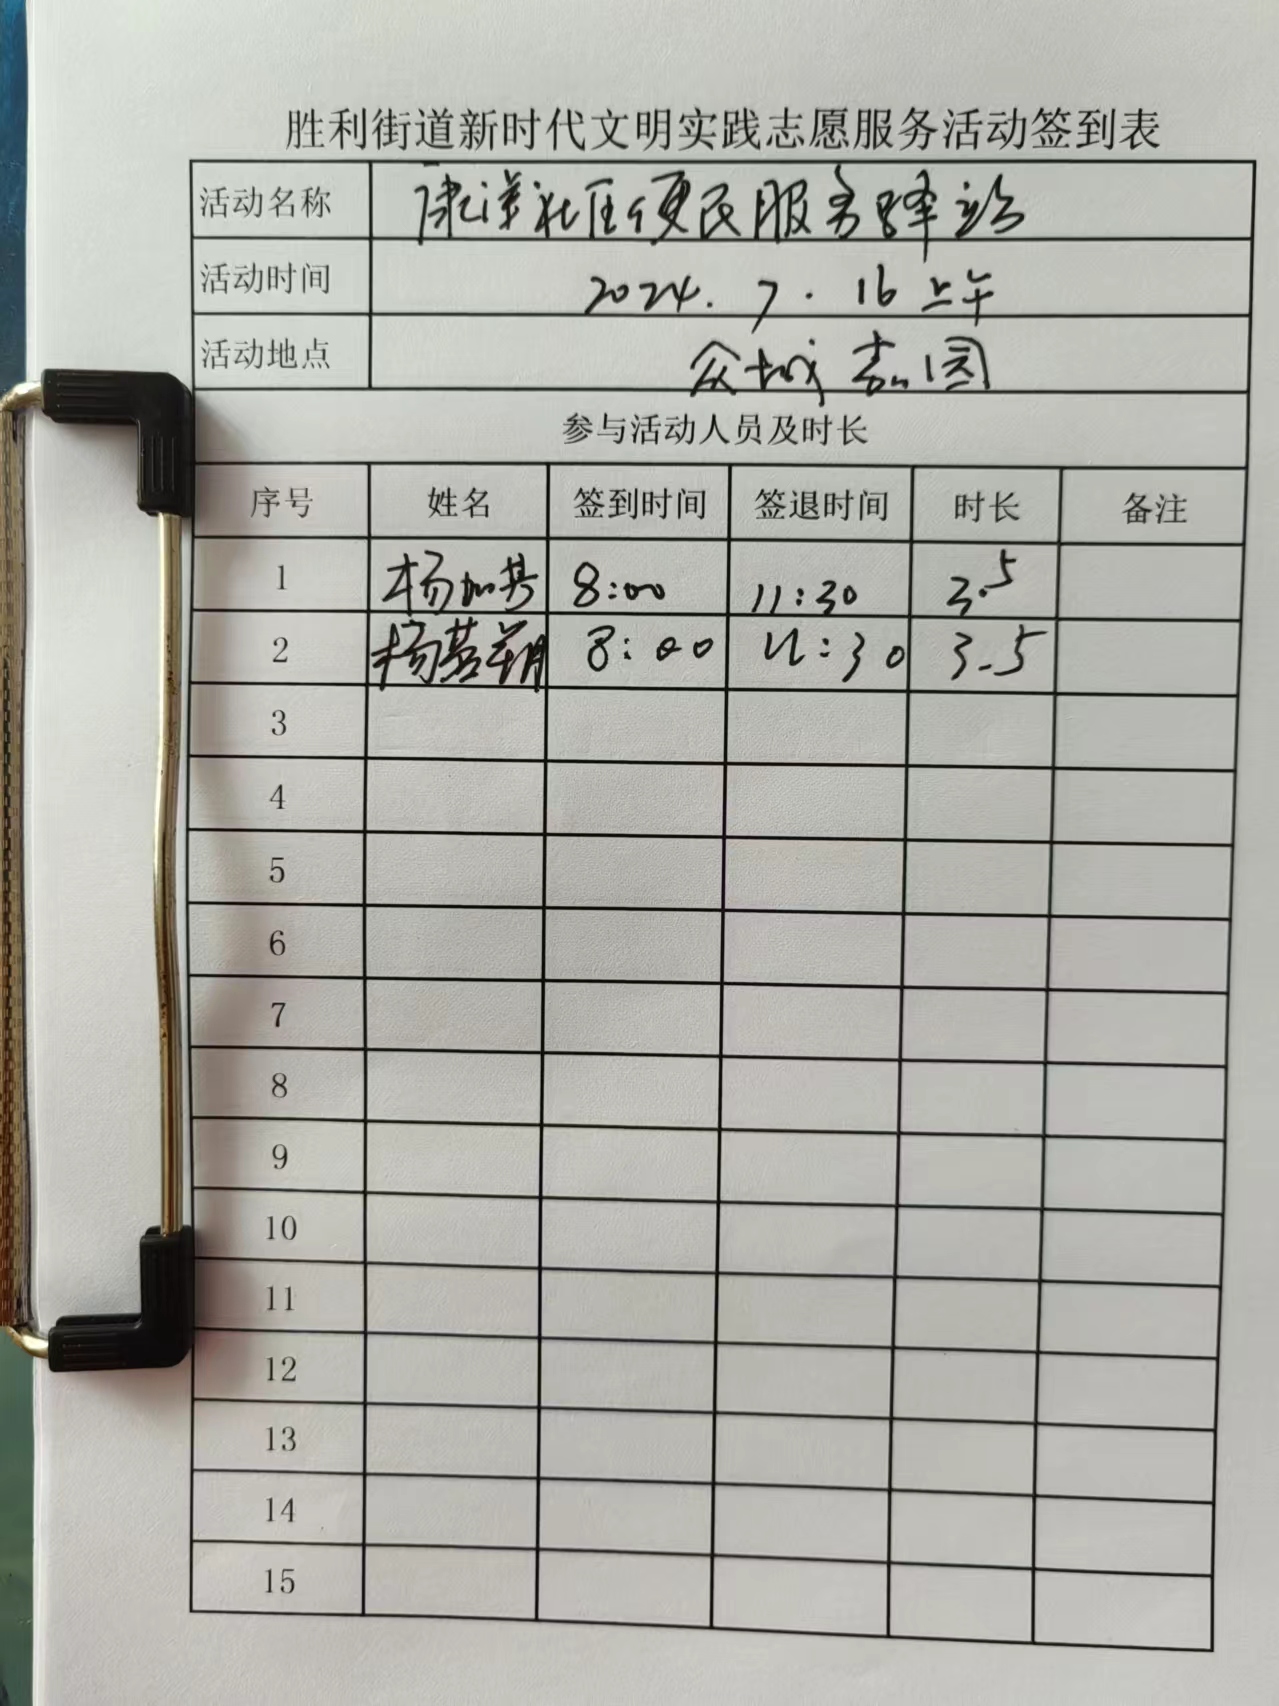 胜利街道新时代文明实践志愿服务活动签到表
活动名称 康洋社区便民服务驿站
活动时间 2024.7.16上午
活动地点 众城嘉园
参与活动人员及时长
序号 姓名 签到时间 签退时间 时长 备注
1 杨加其 8:00 11:30 3.5
2 杨 8:00 11:30 3.5
3
4
5
6
7
8
9
10
11
12
13
14
15